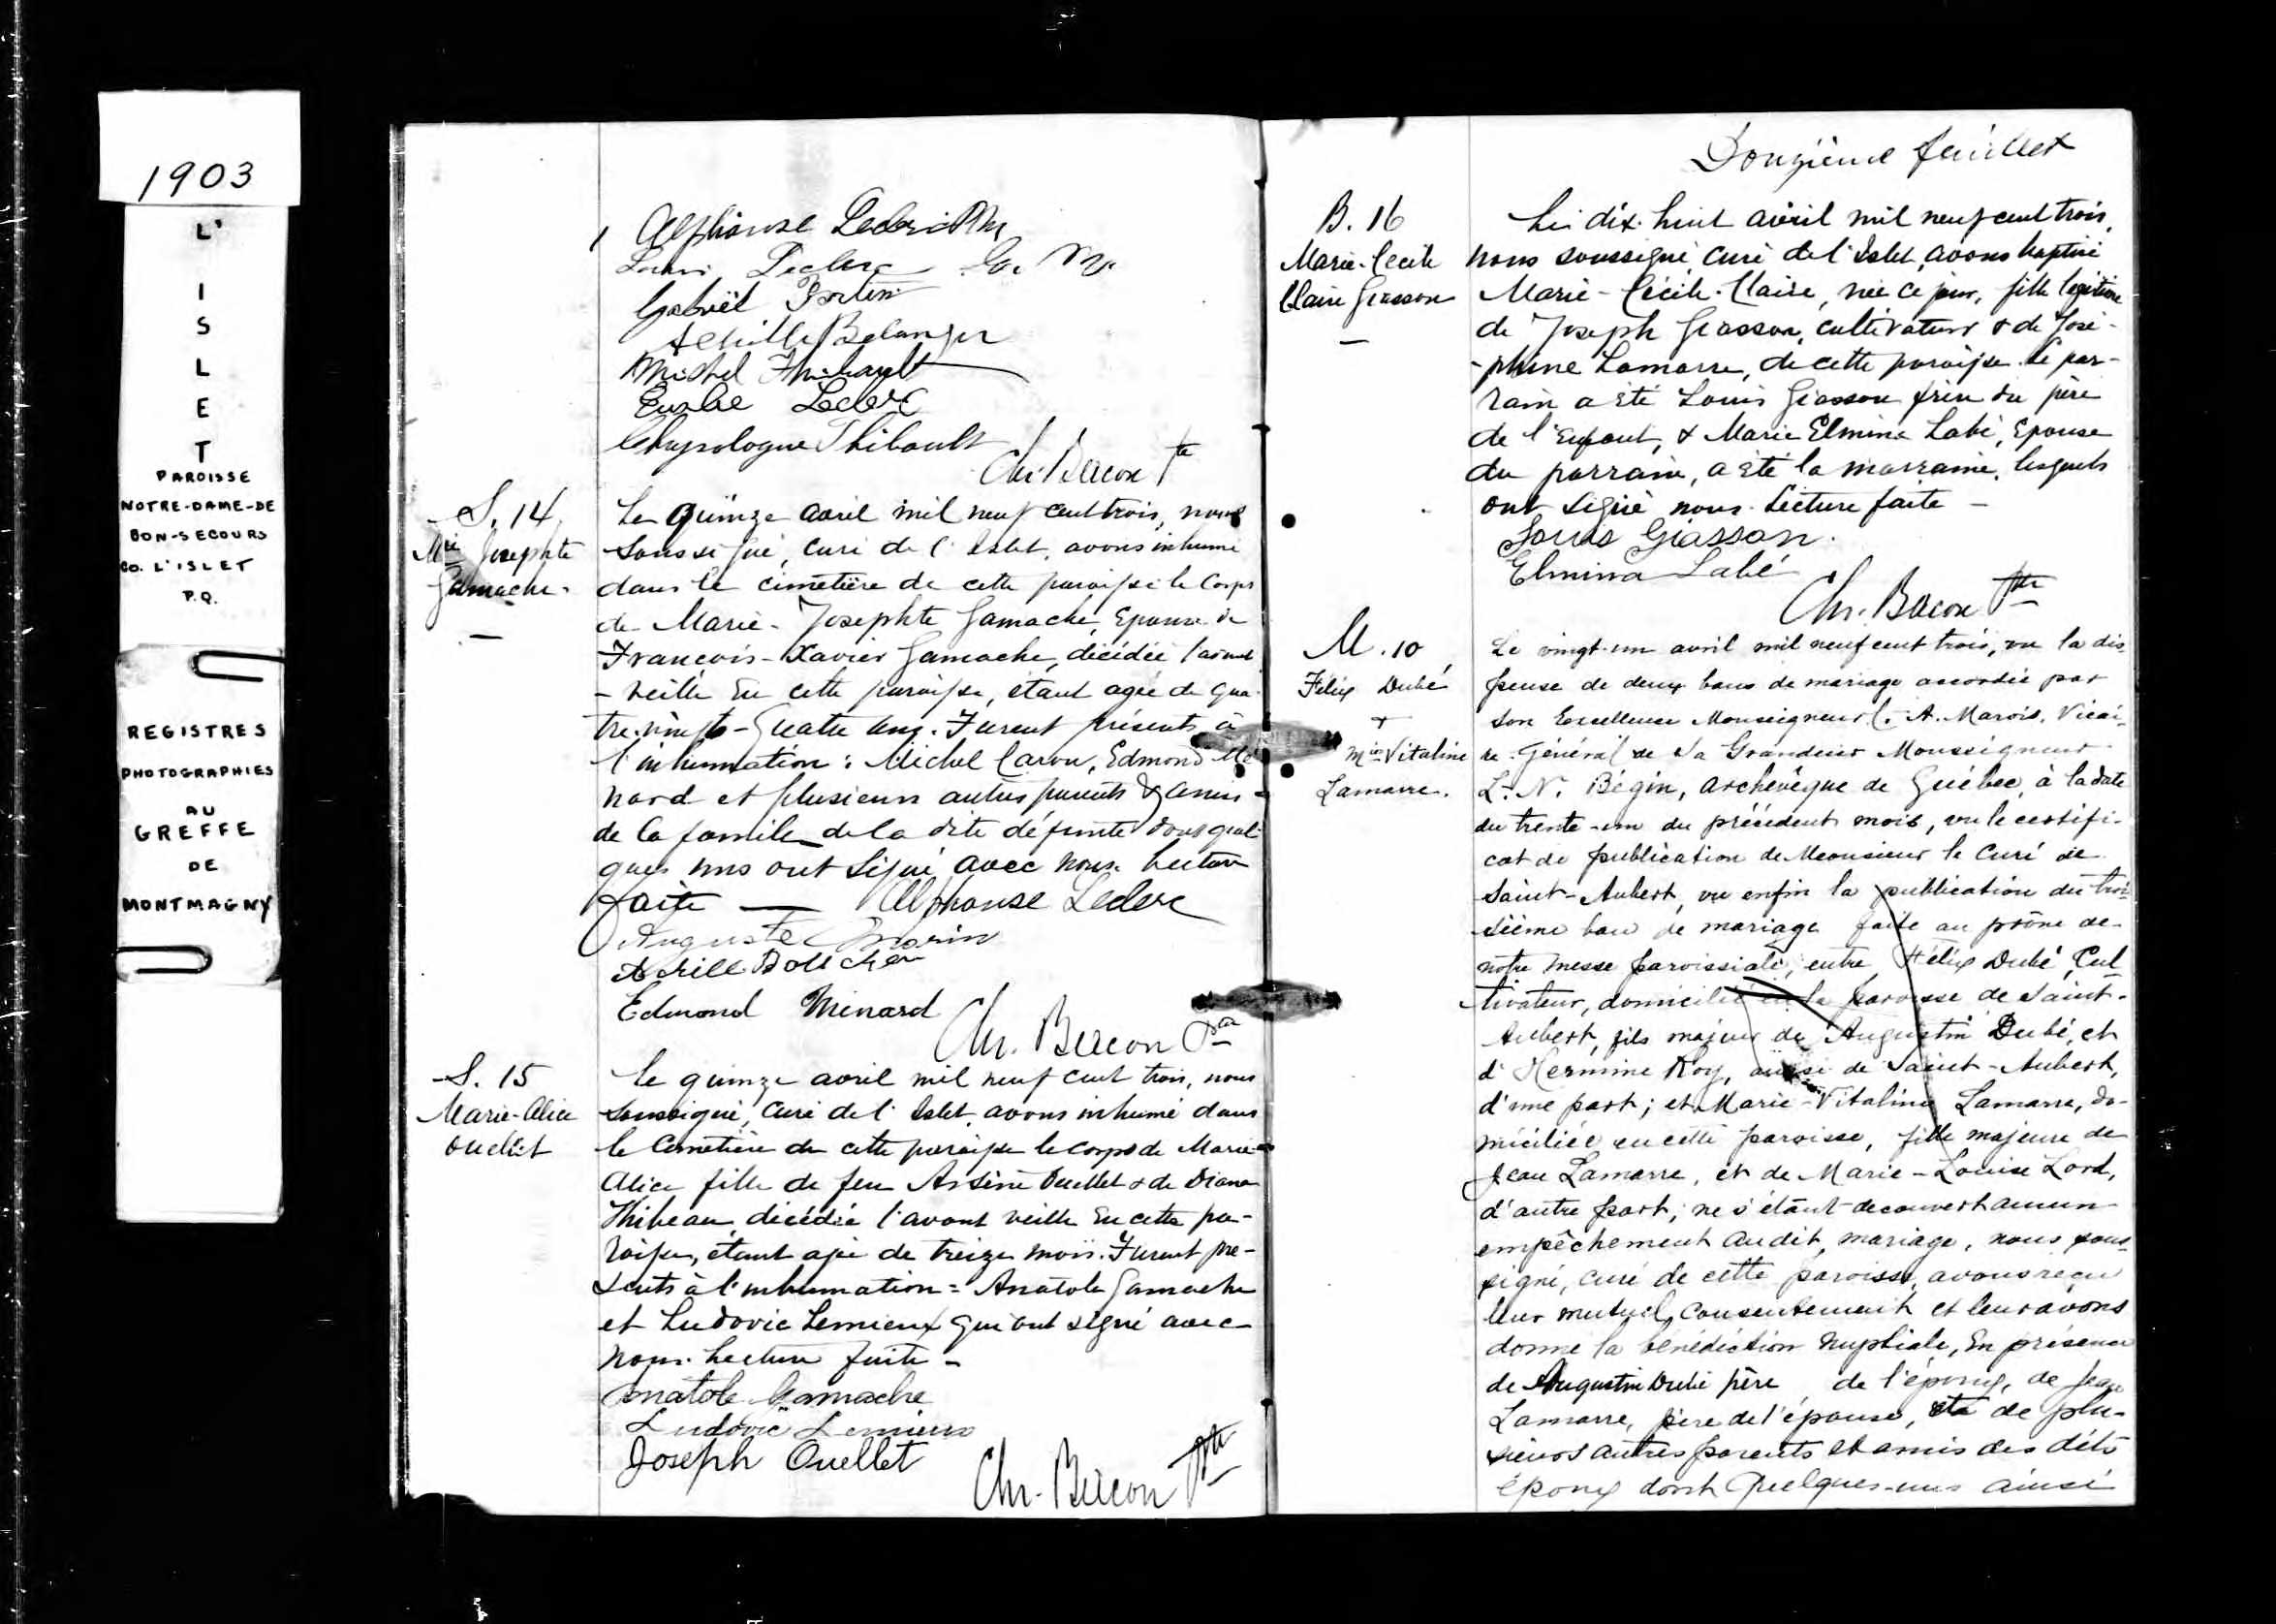 1903
L'
I
S
L
E
T
PAROISSE
NOTRE-DAME-DE
BON-SECOURS
CO. L'ISLET
P.Q.
REGISTRES
PHOTOGRAPHIES
AU
GREFFE
DE
MONTMAGNY
Alphonse Leclerc
Leclerc
Gabriël Fortin
Achille Belanger
Michel Thibault
Eusebe Leclerc
Chrysologue Thibault
Ch. Bacon Ptre
S. 14
Mie Josephte
Gamache.
Le quinze avril mil neuf cent trois, nous
soussigné, curé de l'Islet, avons inhumé
dans le cimetière de cette paroisse le corps
de Marie-Josephte Gamache, Epouse de
François-Xavier Gamache, décédée l'avant
-veille en cette paroisse, étant agée de qua-
tre-vingts-quatre ans. Furent présents à
l'inhumation: Michel Caron, Edmond Mé
nard et plusieurs autres parents & amis
de la famille de la dite défunte dont quel-
ques uns ont signé avec nous. Lecture
faite — Alphonse Leclerc
Auguste Morin
Achille Boucher
Edmond Ménard
Ch. Bacon Ptre
S. 15
Marie-Alice
Ouellet
Le quinze avril mil neuf cent trois, nous
soussigné, curé de l'Islet, avons inhumé dans
le cimetière de cette paroisse le corps de Marie-
Alice fille de feu Arsène Ouellet & de Diana
Thibeau, décédée l'avant veille en cette pa-
roisse, étant agée de treize mois. Furent pré-
sents à l'inhumation = Anatole Gamache
et Ludovic Lemieux qui ont signé avec
nous. Lecture faite -
Anatole Gamache
Ludovic Lemieux
Joseph Ouellet
Ch. Bacon Ptre
Douzième feuillet
B. 16
Marie-Cécile
Claire Giasson
—
Le dix-huit avril mil neuf cent trois,
nous soussigné, curé de l'Islet, avons baptisé
Marie-Cécile-Claire, née ce jour, fille légitime
de Joseph Giasson, cultivateur & de José-
-phine Lamarre, de cette paroisse. Le par-
rain a été Louis Giasson frère du père
de l'enfant, & Marie Elmina Labé, Epouse
du parrain, a été la marraine, lesquels
ont signé nous. Lecture faite -
Louis Giasson.
Elmina Labé
Ch. Bacon Ptre
M. 10
Félix Dubé
+
Mie Vitaline
Lamarre.
Le vingt-un avril mil neuf cent trois, vu la dis-
pense de deux bans de mariage accordée par
Son Excellence Monseigneur C. A. Marois, Vicai-
re-Général de Sa Grandeur Monseigneur
L. N. Bégin, archevêque de Québec, à la date
du trente-un du précédent mois, vu le certifi-
cat de publication de Monsieur le Curé de
Saint-Aubert, vu enfin la publication du troi-
sième ban de mariage faite au prône de
notre messe paroissiale, entre Félix Dubé, Cul-
tivateur, domicilié en la paroisse de Saint-
Aubert, fils majeur de Augustin Dubé, et
d'Hermine Roy, aussi de Saint-Aubert,
d'une part; et Marie-Vitaline Lamarre, do-
miciliée en cette paroisse, fille majeure de
Jean Lamarre, et de Marie-Louise Lord,
d'autre part; ne s'étant decouvert aucun
empêchement audit mariage, nous sous-
signé, curé de cette paroisse, avons reçu
leur mutuel consentement et leur avons
donné la bénédiction nuptiale, En présence
de Augustin Dubé père de l'époux, de Jean
Lamarre, père de l'épouse, et de plu-
sieurs autres parents et amis des dits
époux dont quelques-uns ainsi